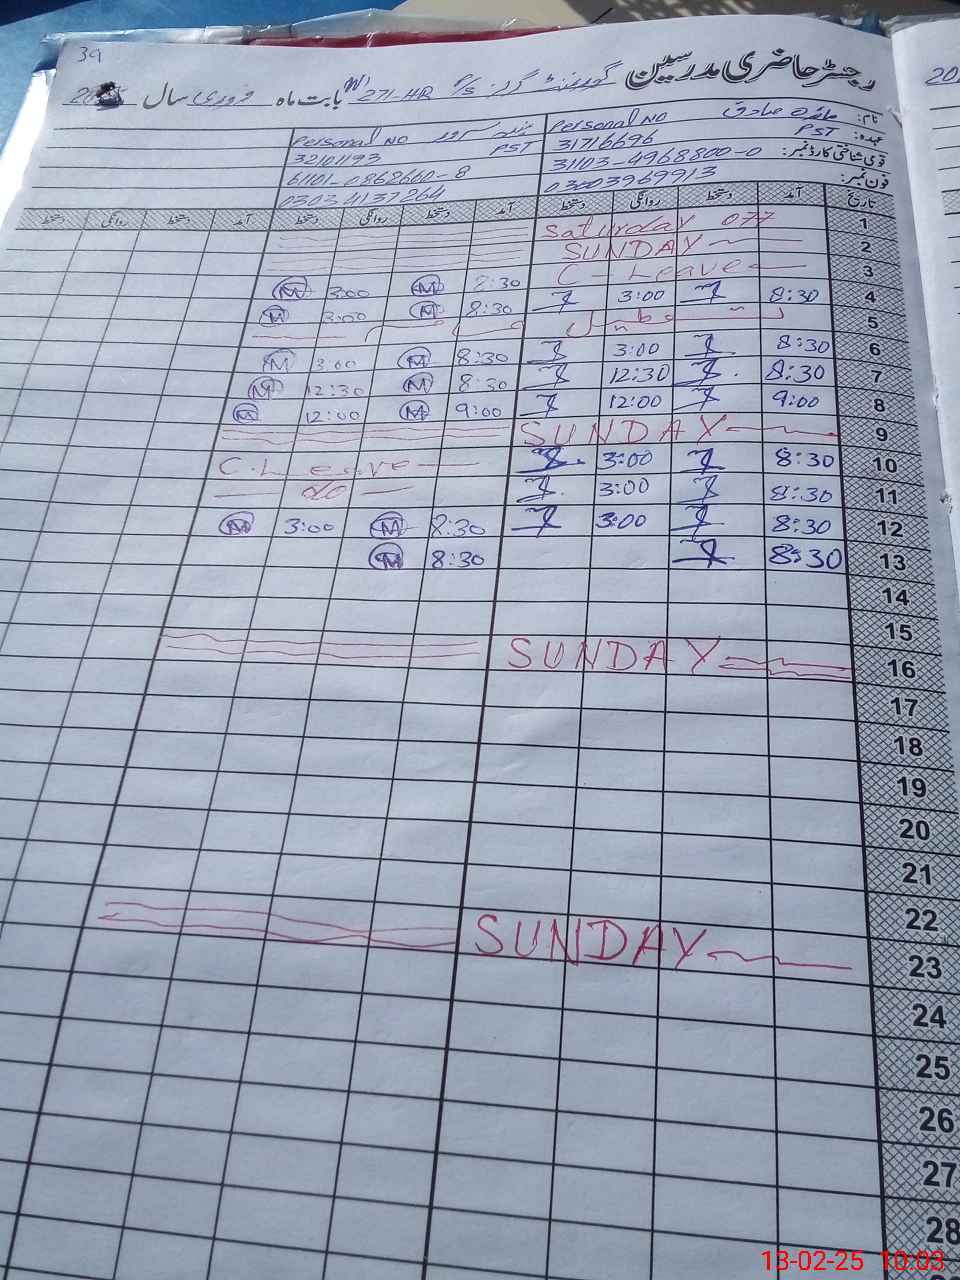 39
رجسٹر حاضری مدرسین گورنمنٹ گرلز P/S 271-HR بابت ماہ فروری سال
نام: صادق Personal NO سرور Personal NO
عہدہ: PST 31716696 PST 32101193
قومی شناختی کارڈ نمبر: 31103-4968800-0 61101-0862660-8
فون نمبر: 03003969913 03034137264
تاریخ آمد دستخط روانگی دستخط آمد دستخط روانگی دستخط آمد دستخط روانگی دستخط
1 Saturday
2 SUNDAY
3 C-Leave 8:30 M 3:00 M
4 8:30 3:00 8:30 M 3:00 M
5
6 8:30 3:00 8:30 M 3:00 M
7 8:30 12:30 8:30 M 12:30 M
8 9:00 12:00 9:00 M 12:00 M
9 SUNDAY
10 8:30 3:00 C.Leave
11 8:30 3:00 do
12 8:30 3:00 8:30 M 3:00 M
13 8:30 8:30 M
14
15
16 SUNDAY
17
18
19
20
21
22
23 SUNDAY
24
25
26
27
28
13-02-25 10:03